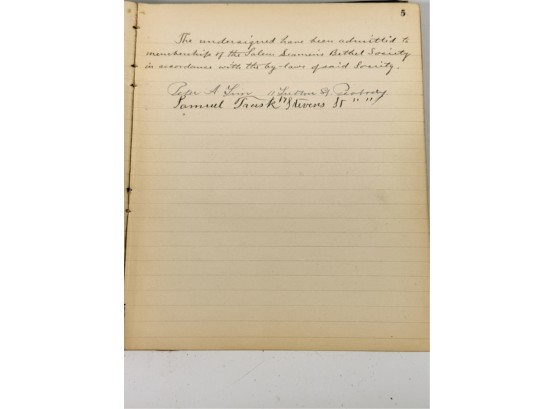 5
The undersigned have been admitted to
membership of the Salem Seamen's Bethel Society
in accordance with the by-laws of said Society.
A 11 St. Peabody
Samuel Trask 17 Stevens St " "